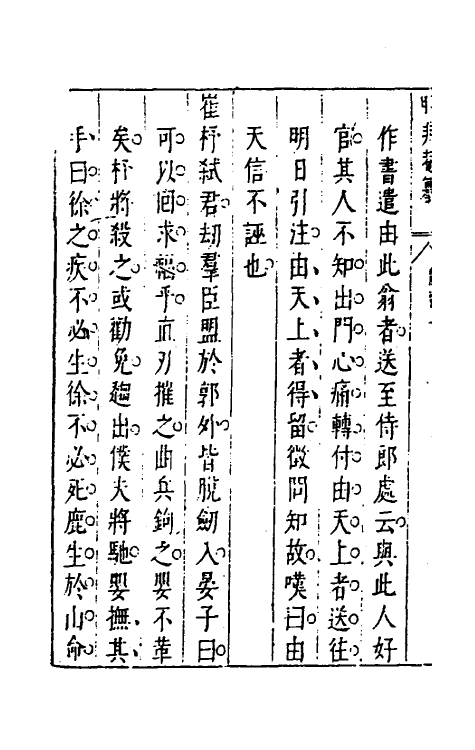 作書遣由此翁者送至侍郎處云與此人好
官其人不知出門心痛轉付由天上者送往
明日引注由天上者得留微問知故嘆曰由
天信不誣也
崔杼弑君劫羣臣盟於郭外皆脫劒入晏子曰
可以囘求福乎直刃摧之曲兵鉤之嬰不革
矣杼將殺之或勸免趨出僕夫將馳嬰撫其
手曰徐之疾不必生徐不必死鹿生於山命